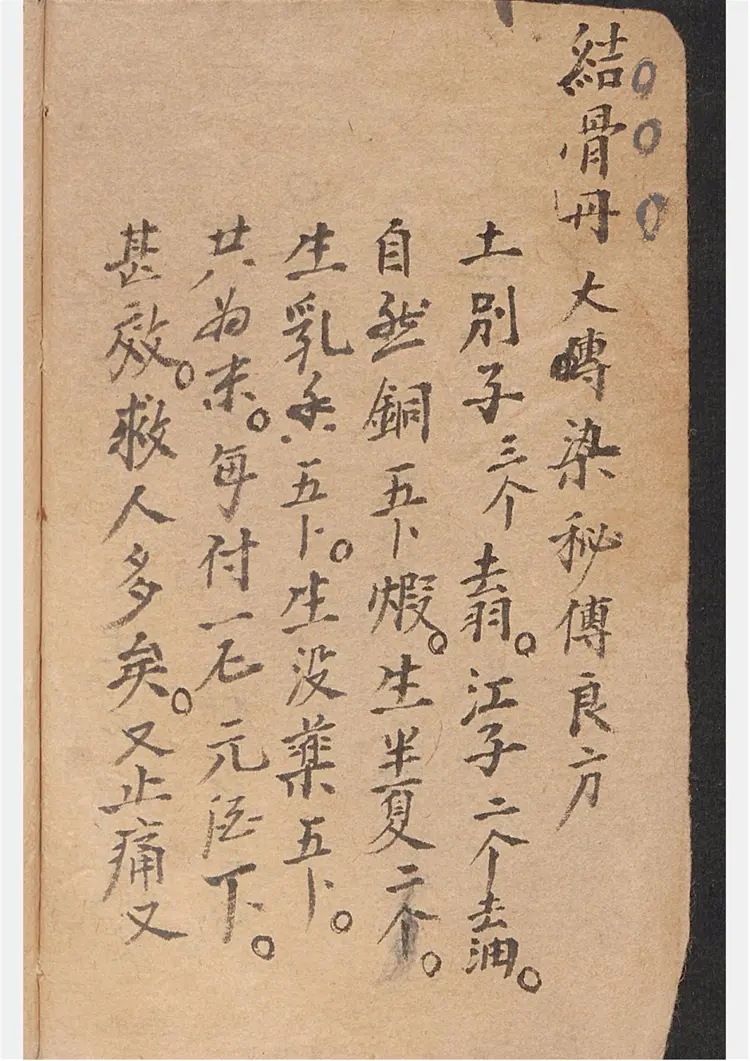 結骨丹 大染秘傳良方
土別子三个去羽。江子二个去油。
自然銅五卜煆。生半夏二个。
生乳香五卜。生没藥五卜。
共为末。每付一元酒下。
甚效。救人多矣。又止痛又